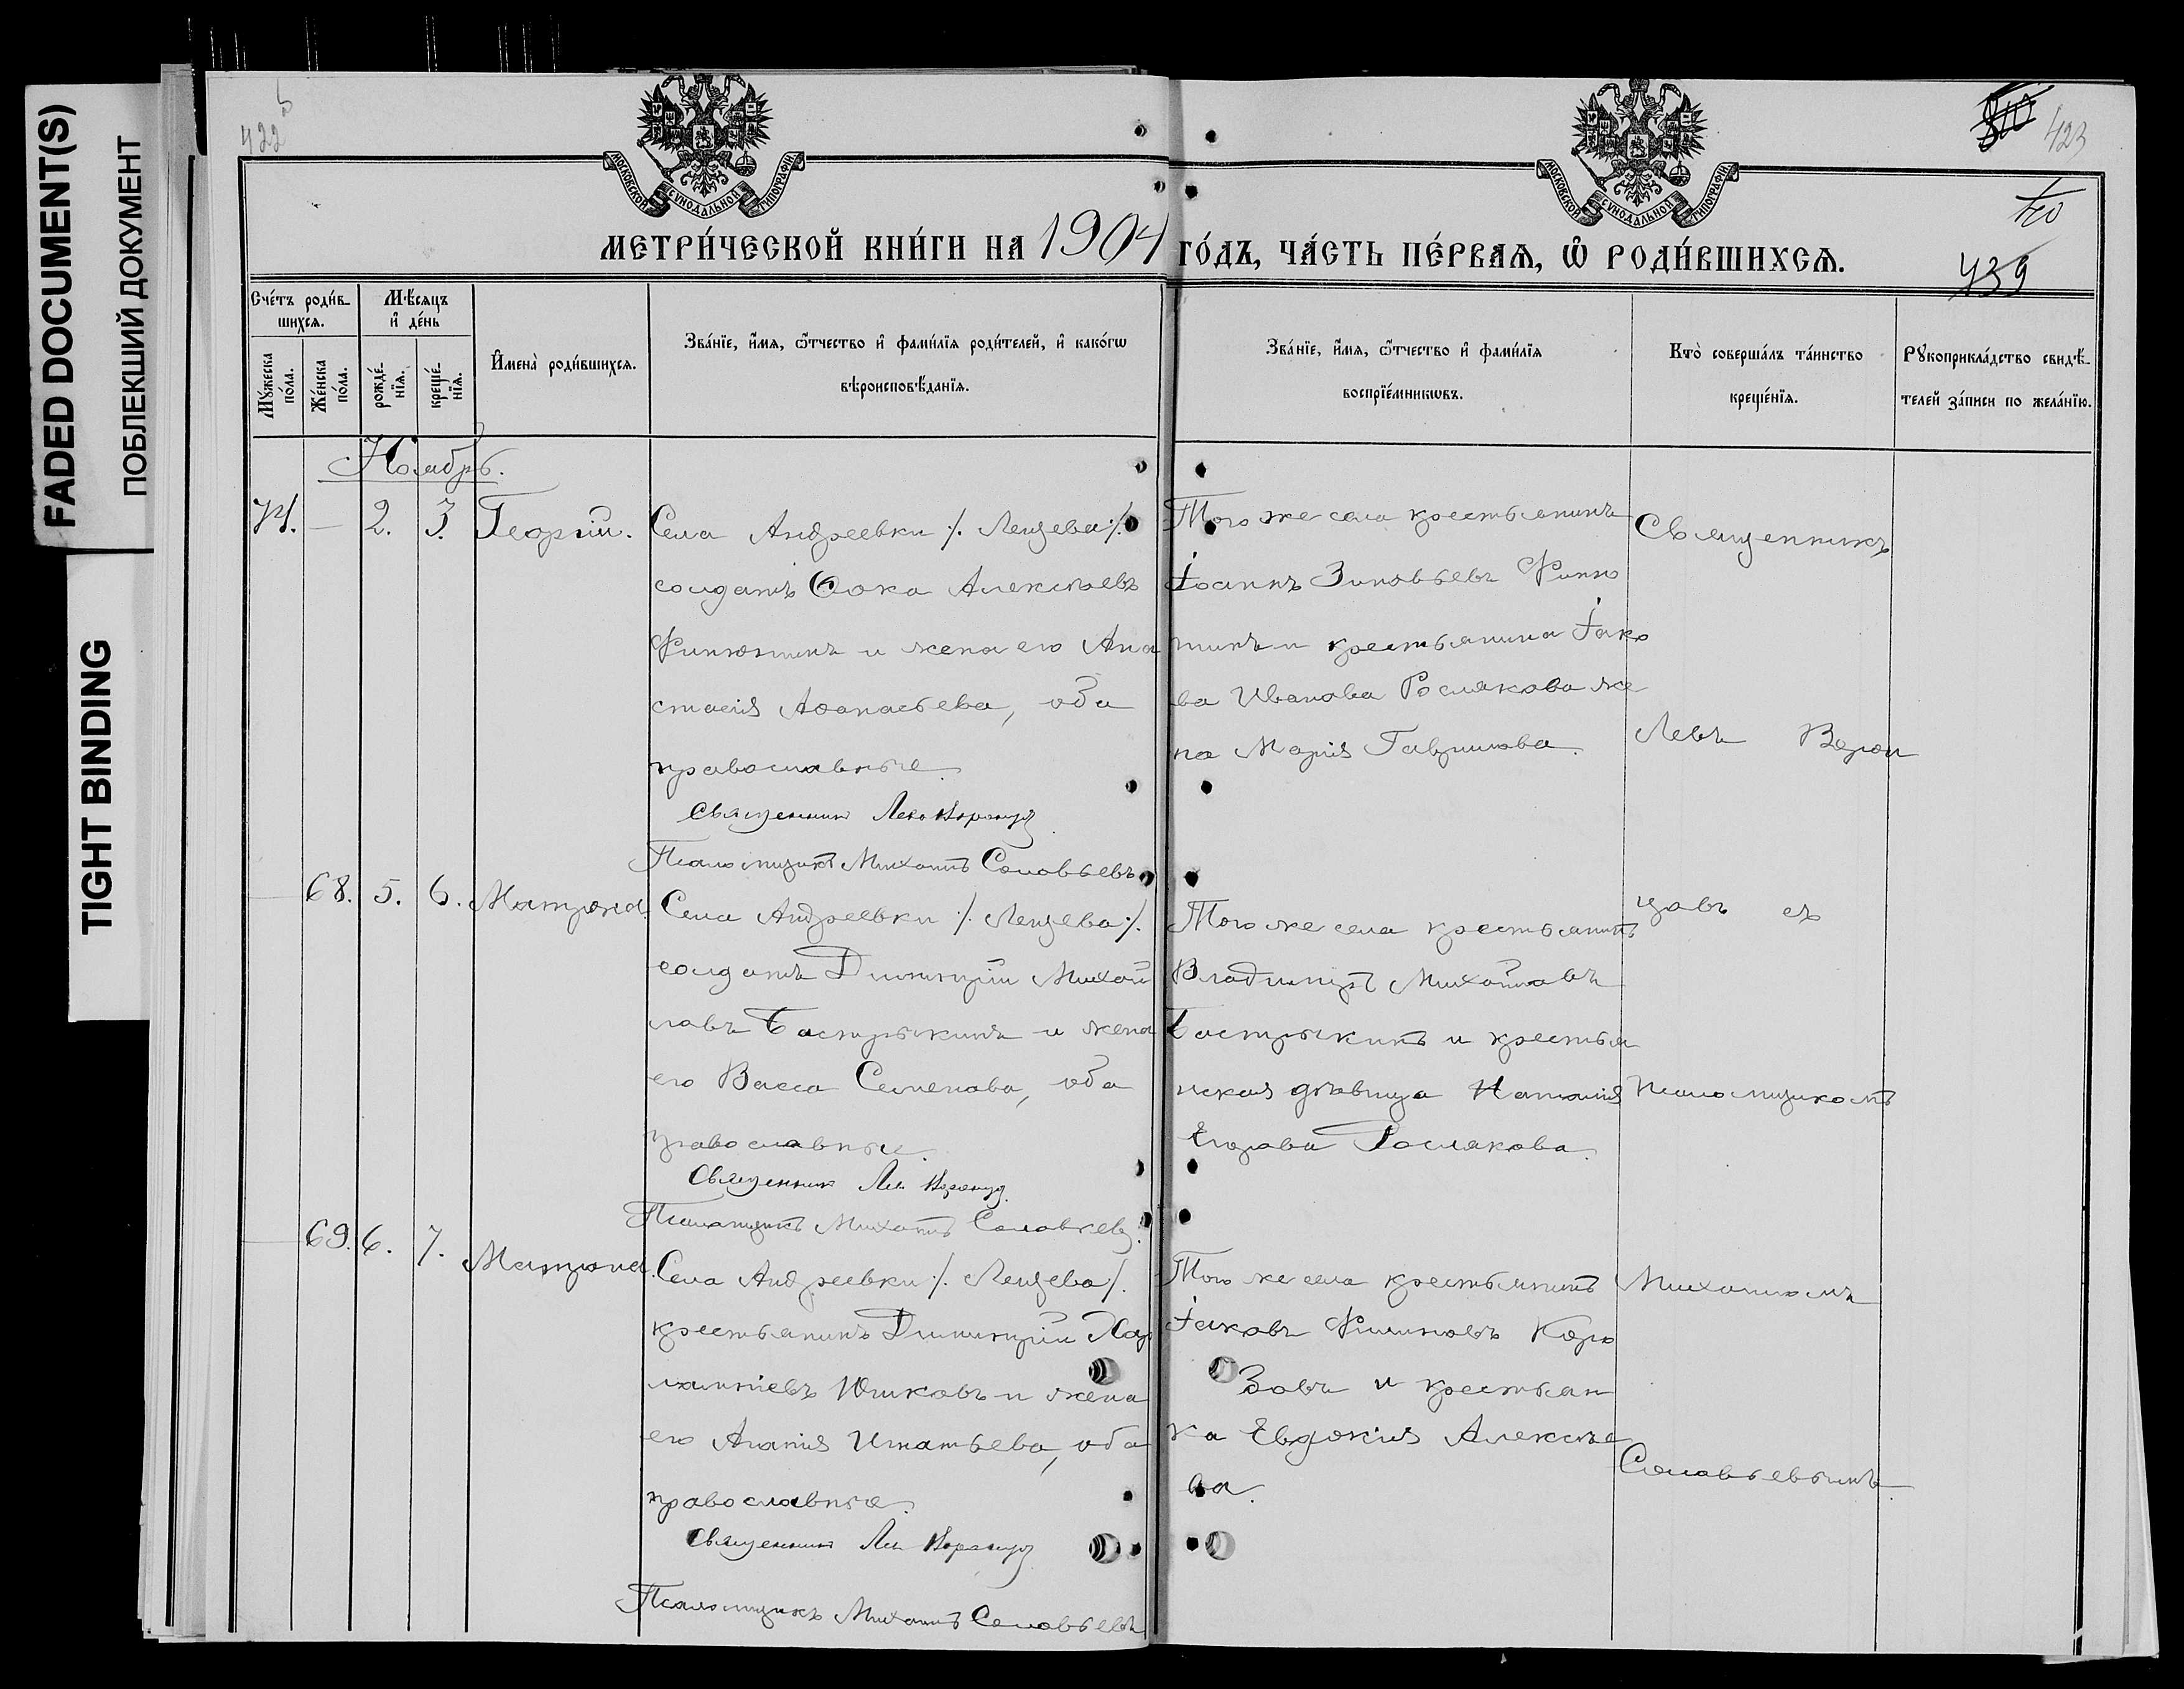 FADED DOCUMENT(S)
ПОБЛЕКШИЙ ДОКУМЕНТ
TIGHT BINDING
422
423
439
МОСКОВСКОЙ СУНОДАЛЬНОЙ ТИПОГРАФІИ
МОСКОВСКОЙ СУНОДАЛЬНОЙ ТИПОГРАФІИ
МЕТРИ́ЧЕСКОЙ КНИ́ГИ НА 1904 ГО́ДЪ, ЧА́СТЬ ПЕ́РВАѦ, Ѡ҆ РОДИ́ВШИХСѦ.
Сче́тъ роди́в-
шихсѧ.
Мꙋ́жеска по́ла.
Же́нска по́ла.
Мѣ́сѧцъ
и҆ де́нь
рожде́-
нїѧ.
креще́-
нїѧ.
И҆мена̀ роди́вшихсѧ.
Зва́нїе, и҆́мѧ, ѻ҆́тчество и҆ фами́лїѧ роди́телей, и҆ како́гѡ
вѣроисповѣ́данїѧ.
Зва́нїе, и҆́мѧ, ѻ҆́тчество и҆ фами́лїѧ
воспрїе́мникѡвъ.
Кто̀ соверша́лъ та́инство
креще́нїѧ.
Рꙋкоприкла́дство свидѣ́-
телей за́писи по жела́нїю.
Ноябрь.
74. — 2. 3. Георгій.
Села Андреевки /. Лещева /.
солдатъ Ѳока Алексѣевъ
Финютинъ и жена его Ана
стасія Аѳанасьева, оба
православные.
Священникъ Левъ Воронцов
Псаломщикъ Михаилъ Соловьевъ
Того же села крестьянинъ
Іоаннъ Зиновьевъ Финю
тинъ и крестьянина Іако
ва Иванова Рослякова же
на Марія Гаврилова.
Священникъ
Левъ Ворон
цовъ съ
Псаломщикомъ
Михаиломъ
Соловьевымъ.
— 68. 5. 6. Матрона.
Села Андреевки /. Лещева /.
солдатъ Димитрій Михаи
ловъ Бастрыкинъ и жена
его Васса Семенова, оба
православные.
Священник Лев Воронцов
Псаломщикъ Михаилъ Соловьевъ.
Того же села крестьянинъ
Владимиръ Михайловъ
Бастрыкинъ и крестья
нская дѣвица Наталія
Егорова Рослякова.
— 69. 6. 7. Матрона.
Села Андреевки /. Лещева /.
крестьянинъ Димитрій Хар
лампіевъ Юшковъ и жена
его Агапія Игнатьева, оба
православные.
Священник Лев Воронцов
Псаломщикъ Михаилъ Соловьевъ
Того же села крестьянинъ
Іаковъ Филиповъ
зовъ и крестьян
ка Евдокія Алексѣе
ва.